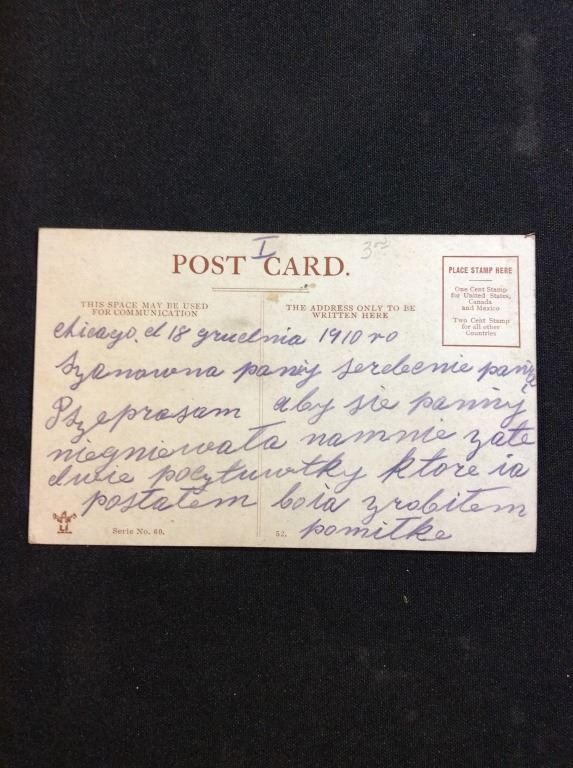 I
3
POST CARD.
THIS SPACE MAY BE USED
FOR COMMUNICATION
THE ADDRESS ONLY TO BE
WRITTEN HERE
PLACE STAMP HERE
One Cent Stamp
for United States,
Canada
and Mexico
Two Cent Stamp
for all other
Countries
Chicago. d 18 grudnia 1910 ro
Szanowna panny serdecnie
Pszeprasam aby sie panny
niegniewała namnie zate
dwie pocztuwtky ktore ia
posłałem boia zrobiłem
pomiłke
Serie No. 60.
52.